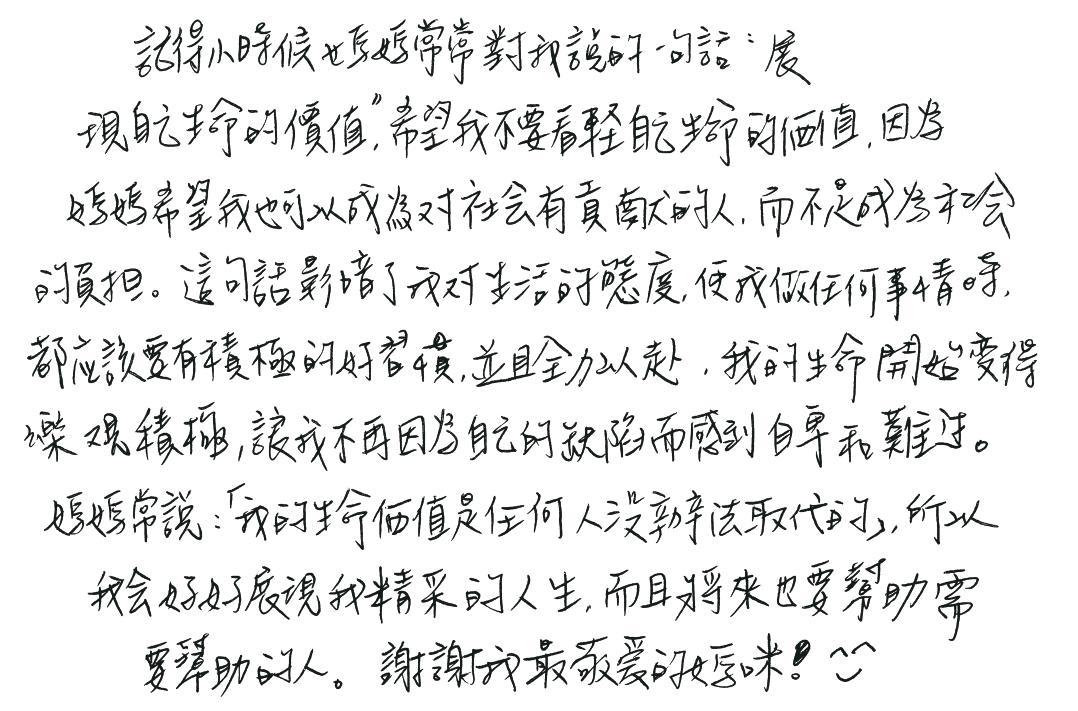 記得小時候也媽媽常常對我說的一句話：展
現自己生命的價值”，希望我不要看輕自己生命的価值，因為
媽媽希望我也可以成為对社会有貢献的人，而不是成為社会
的負担。這句話影响了我对生活的態度，使我做任何事情時，
都应該要有積極的好習慣，並且全力以赴，我的生命開始变得
樂观積極，讓我不再因為自己的缺陷而感到自卑和難过。
媽媽常説：「我的生命価值是任何人没辦法取代的」，所以
我会好好展現我精采的人生，而且將來也要幫助需
要幫助的人。謝謝我最敬爱的媽咪！^^